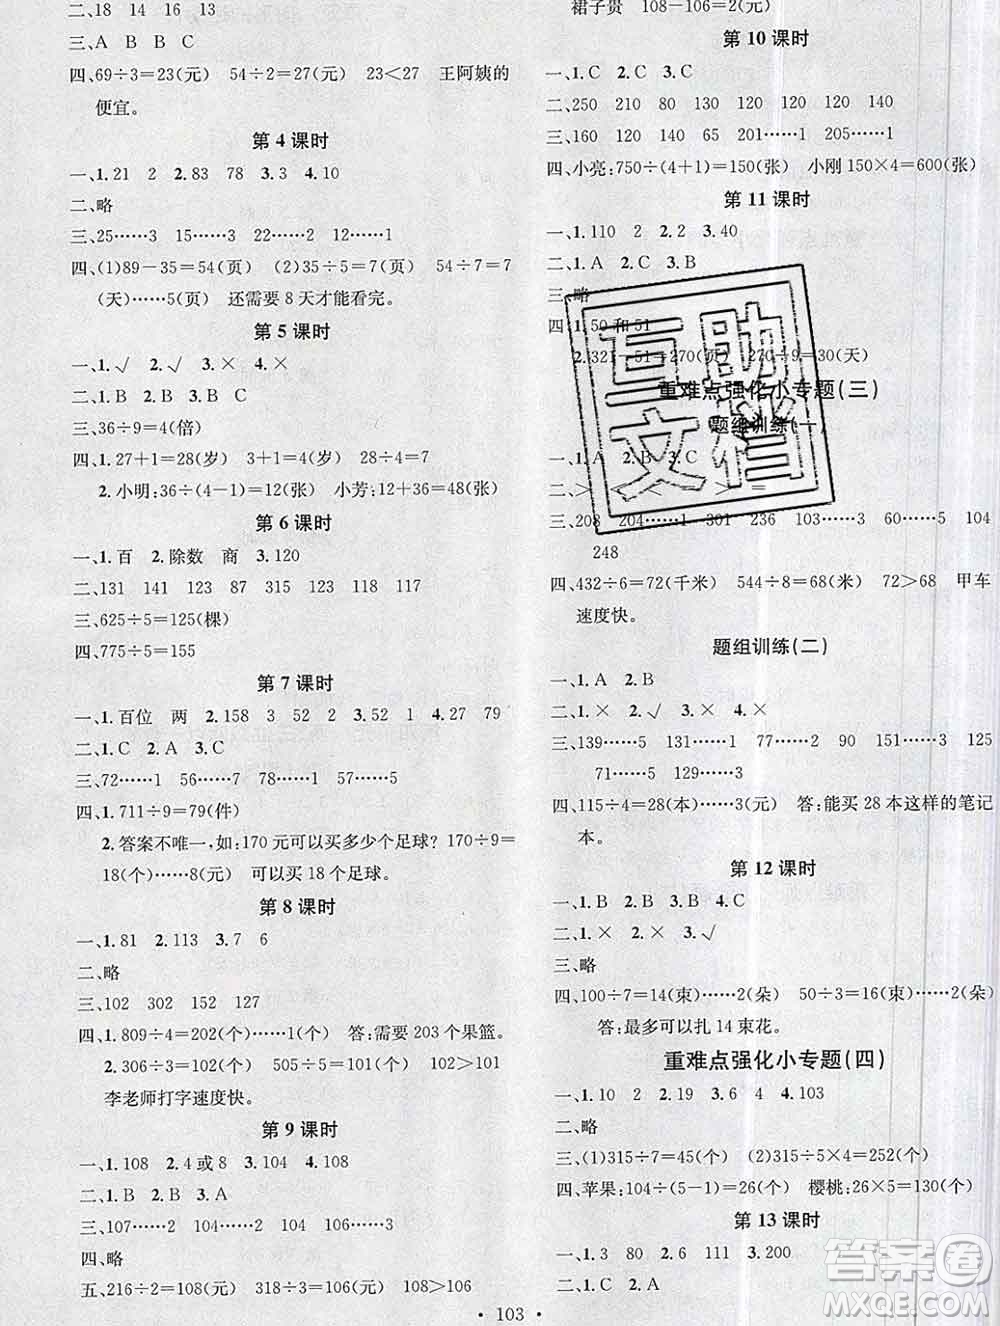 二、18　14　16　13
三、A　B　B　C
四、69÷3=23(元)　54÷2=27(元)　23<27　王阿姨的
便宜。
第 4 课时
一、1.21　2　2.83　78　3.3　4.10
二、略
三、25……3　15……3　22……2　12……1
四、(1)89-35=54(页)　(2)35÷5=7(页)　54÷7=7
(天)……5(页)　还需要 8 天才能看完。
第 5 课时
一、1.√　2.√　3.×　4.×
二、1.B　2.B　3.B　C
三、36÷9=4(倍)
四、1.27+1=28(岁)　3+1=4(岁)　28÷4=7(岁)
2.小明:36÷(4-1)=12(张)　小芳:12+36=48(张)
第 6 课时
一、1.百　2.除数　商　3.120
二、131　141　123　87　315　123　117
三、625÷5=125(棵)
四、775÷5=155
第 7 课时
一、1.百位　两　2.158　3　52　2　3.52　1　4.27　79
二、1.C　2.A　3.C
三、72……1　56……7　77……2
四、1.711÷9=79(件)
2.答案不唯一,如:170 元可以买多少个足球? 170÷9=
18(个)……8(元)　可以买 18 个足球。
第 8 课时
一、1.81　2.113　3.7　6
二、略
三、102　302　152　127
四、1.809÷4=202(个)……1(个)　答:需要 203 个果篮。
2.306÷3=102(个)　505÷5=101(个)　102>101
李老师打字速度快。
第 9 课时
一、1.108　2.4 或 8　3.104　4.108
二、1.B　2.B　3.A
三、107……2　104……2　104……2
四、略
五、216÷2=108(元)　318÷3=106(元)　108>106
裙子贵　108-106=2(元)
第 10 课时
一、1.C　2.C　3.C
二、250　210　80　130　120　120　140
三、160　120　140　65　201……1　205……1
四、小亮:750÷(4+1)=150(张)　小刚 150×4=600(张)
第 11 课时
一、1.110　2　2.2　3.40
二、1.A　2.C　3.B
三、略
四、1.50 和 51
2.321-51=270(页)　270÷9=30(天)
重难点强化小专题(三)
题组训练(一)
一、1.A　2.B　3.C
二、>
三、208　204……1　301　236　103……3　60……5　104
248
四、432÷6=72(千米)　544÷8=68(米)　72>68　甲车
速度快。
题组训练(二)
一、1.A　2.B
二、1.×　2.√　3.×　4.×
三、139……5　131……1　77……2　90　151……3　125
71……5　129……3
四、115÷4=28(本)……3(元)　答:能买 28 本这样的笔记
本。
第 12 课时
一、1.B　2.B　3.B　4.C
二、1.×　2.×　3.√
三、略
四、100÷7=14(束)……2(朵)　50÷3=16(朵)……2(朵)
答:最多可以扎 14 束花。
重难点强化小专题(四)
一、1.10　2　2.19　3.6　4　4.103
二、略
三、(1)315÷7=45(个)　(2)315÷5×4=252(个)
四、苹果:104÷(5-1)=26(个)　樱桃:26×5=130(个)
第 13 课时
一、1.3　80　2.6　111　3.200
二、1.C　2.A
· 103 ·
互助
文档
答案圈
MXQE.COM